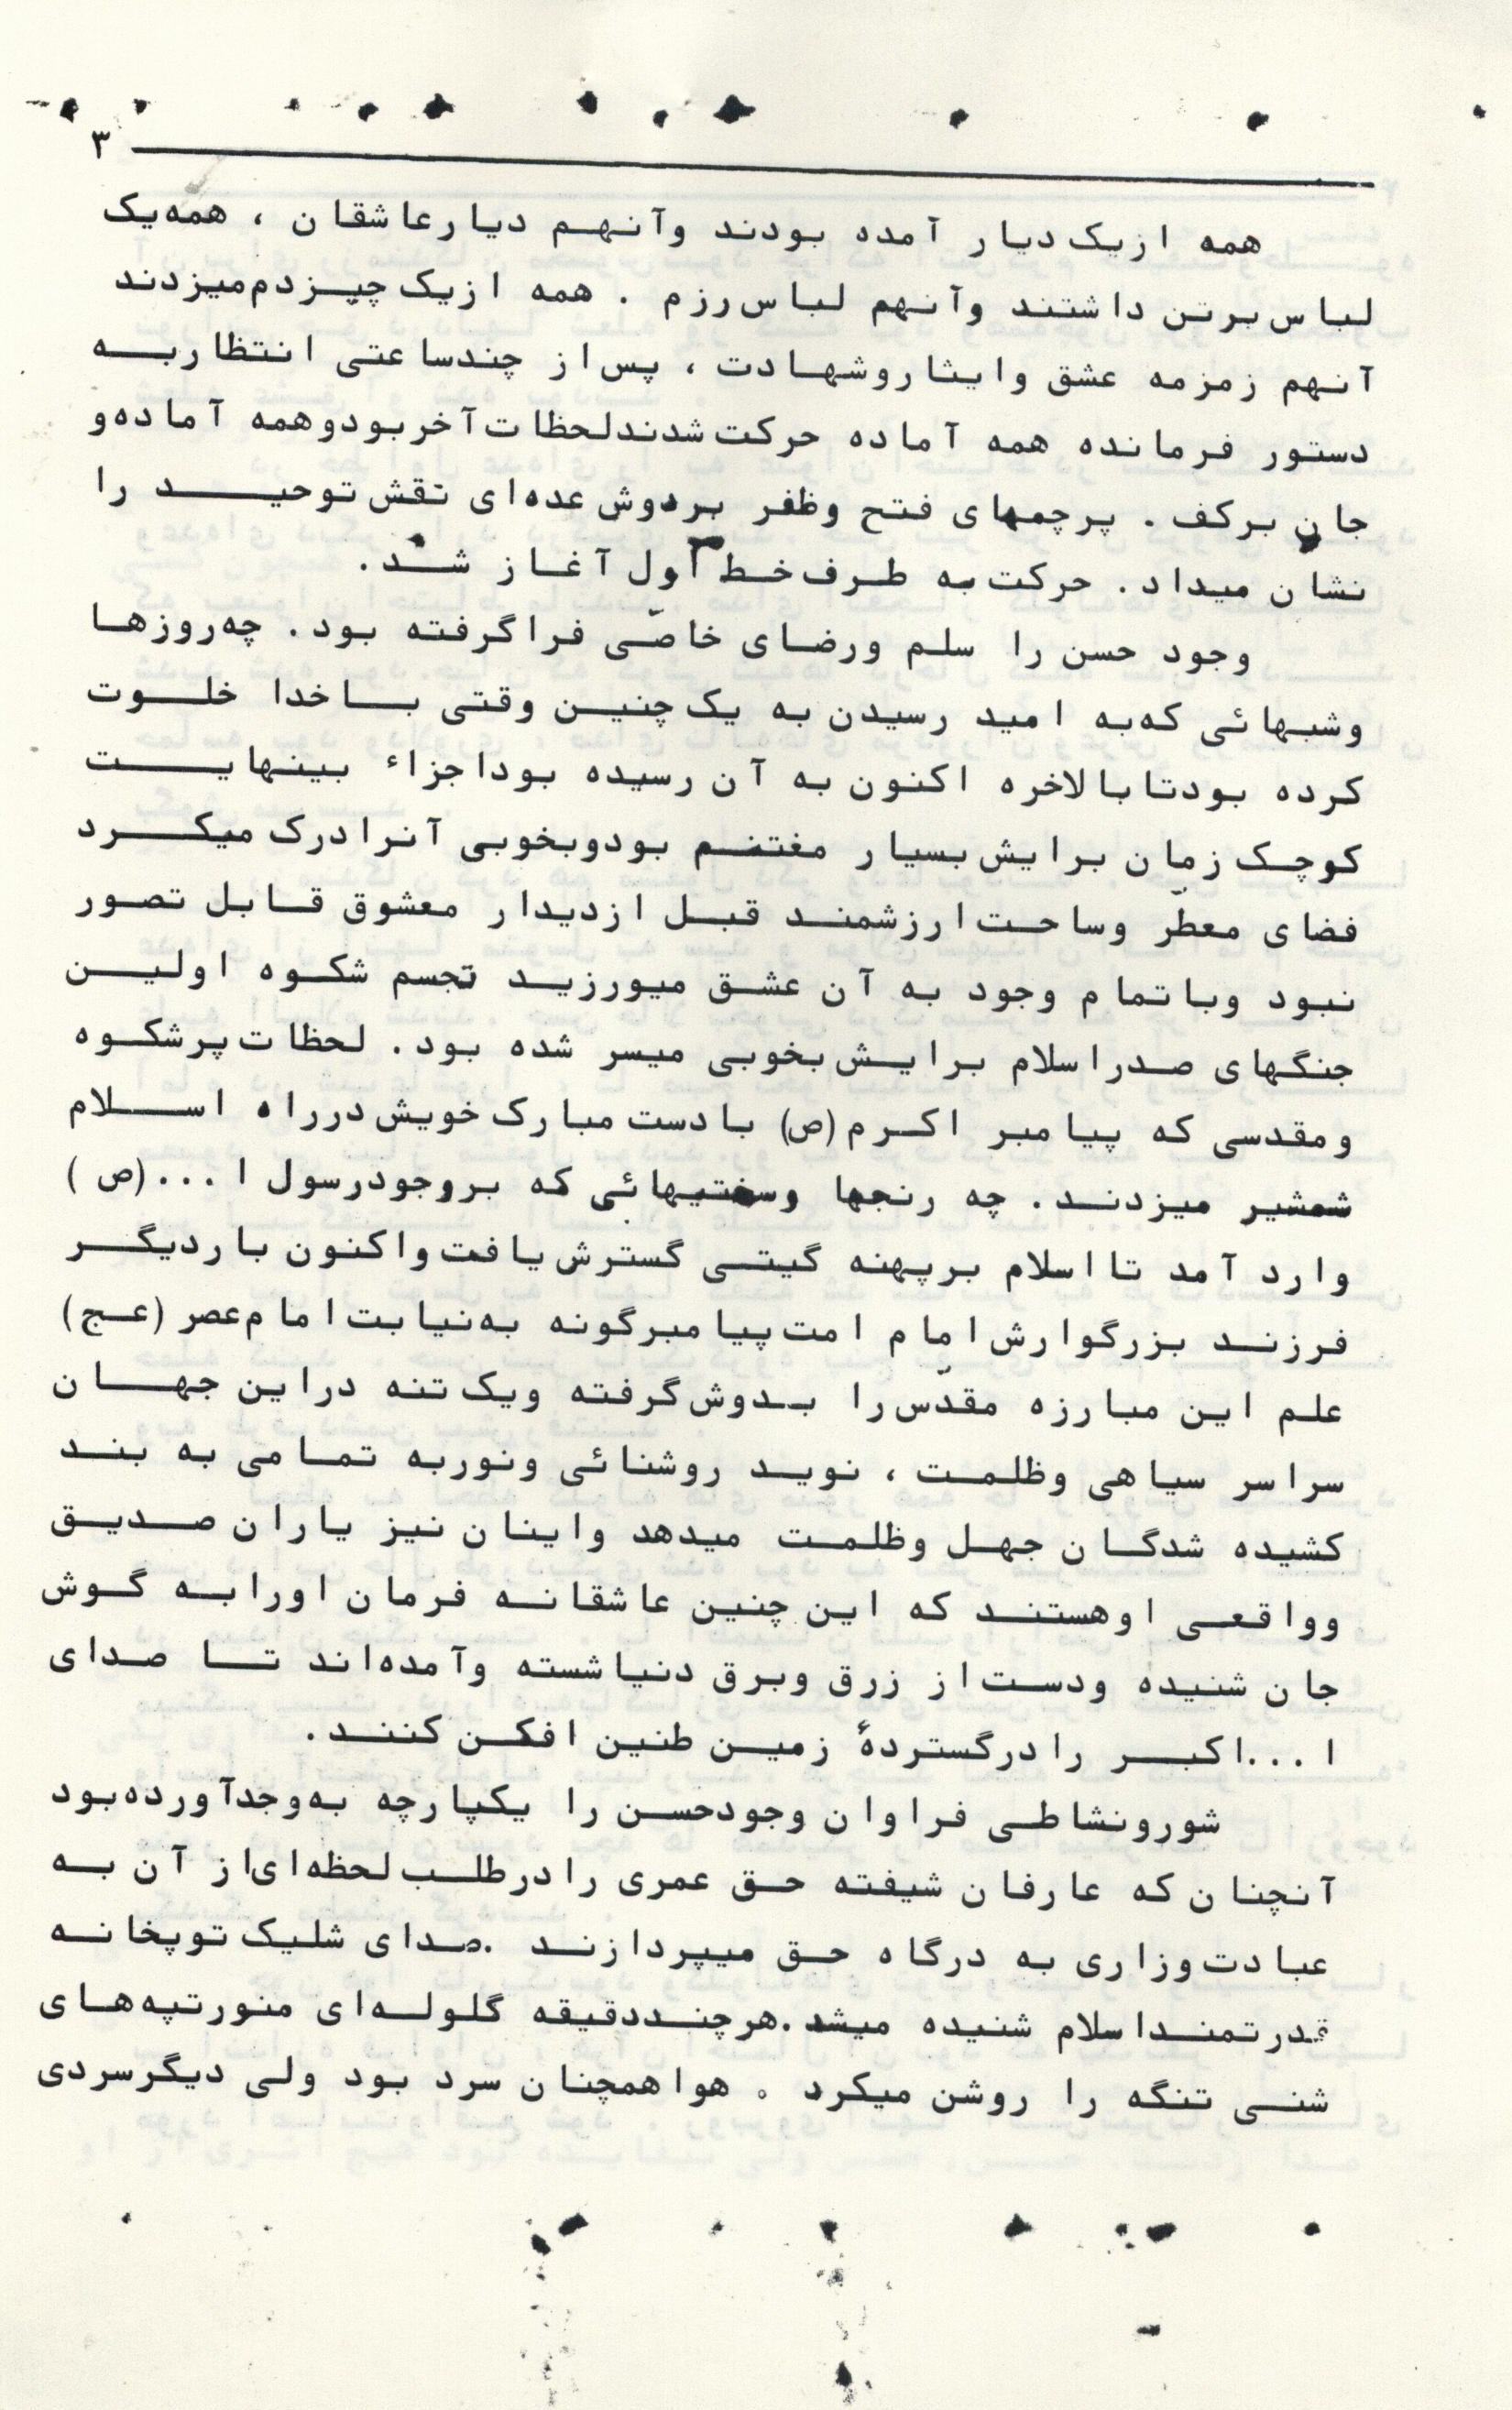 ۳
همه از یک دیار آمده بودند و آنهم دیار عاشقان ، همه یک
لباس برتن داشتند و آنهم لباس رزم . همه از یک چیز دم میزدند
آنهم زمزمه عشق و ایثار و شهادت ، پس از چند ساعتی انتظار به
دستور فرمانده همه آماده حرکت شدند لحظات آخر بود و همه آماده و
جان برکف . پرچمهای فتح و ظفر بردوش عده‌ای نقش توحید را
نشان میداد . حرکت به طرف خط اول آغاز شد .
وجود حسن را سلم و رضای خاصّی فرا گرفته بود . چه روزها
و شبهائی که به امید رسیدن به یک چنین وقتی با خدا خلوت
کرده بود تا بالاخره اکنون به آن رسیده بود اجزاء بینهایت
کوچک زمان برایش بسیار مغتنم بود و بخوبی آنرا درک میکرد
فضای معطّر و ساحت ارزشمند قبل از دیدار معشوق قابل تصور
نبود و با تمام وجود به آن عشق میورزید تجسم شکوه اولین
جنگهای صدر اسلام برایش بخوبی میسر شده بود . لحظات پرشکوه
و مقدسی که پیامبر اکرم (ص) با دست مبارک خویش در راه اسلام
شمشیر میزدند . چه رنجها و سختیهائی که بر وجود رسول ا ... (ص)
وارد آمد تا اسلام برپهنه گیتی گسترش یافت و اکنون بار دیگر
فرزند بزرگوارش امام امت پیامبرگونه به نیابت امام عصر (عج)
علم این مبارزه مقدّس را بدوش گرفته و یک تنه در این جهان
سراسر سیاهی و ظلمت ، نوید روشنائی و نور به تمامی به بند
کشیده شدگان جهل و ظلمت میدهد و اینان نیز یاران صدیق
و واقعی او هستند که این چنین عاشقانه فرمان او را به گوش
جان شنیده و دست از زرق و برق دنیا شسته و آمده‌اند تا صدای
ا ... اکبر را در گستردهٔ زمین طنین افکن کنند .
شور و نشاطی فراوان وجود حسن را یکپارچه به وجد آورده بود
آنچنان که عارفان شیفته حق عمری را در طلب لحظه‌ای از آن به
عبادت و زاری به درگاه حق میپردازند . صدای شلیک توپخانه
قدرتمند اسلام شنیده میشد . هر چند دقیقه گلوله‌ای منور تپه‌های
شنی تنگه را روشن میکرد . هوا همچنان سرد بود ولی دیگر سردی